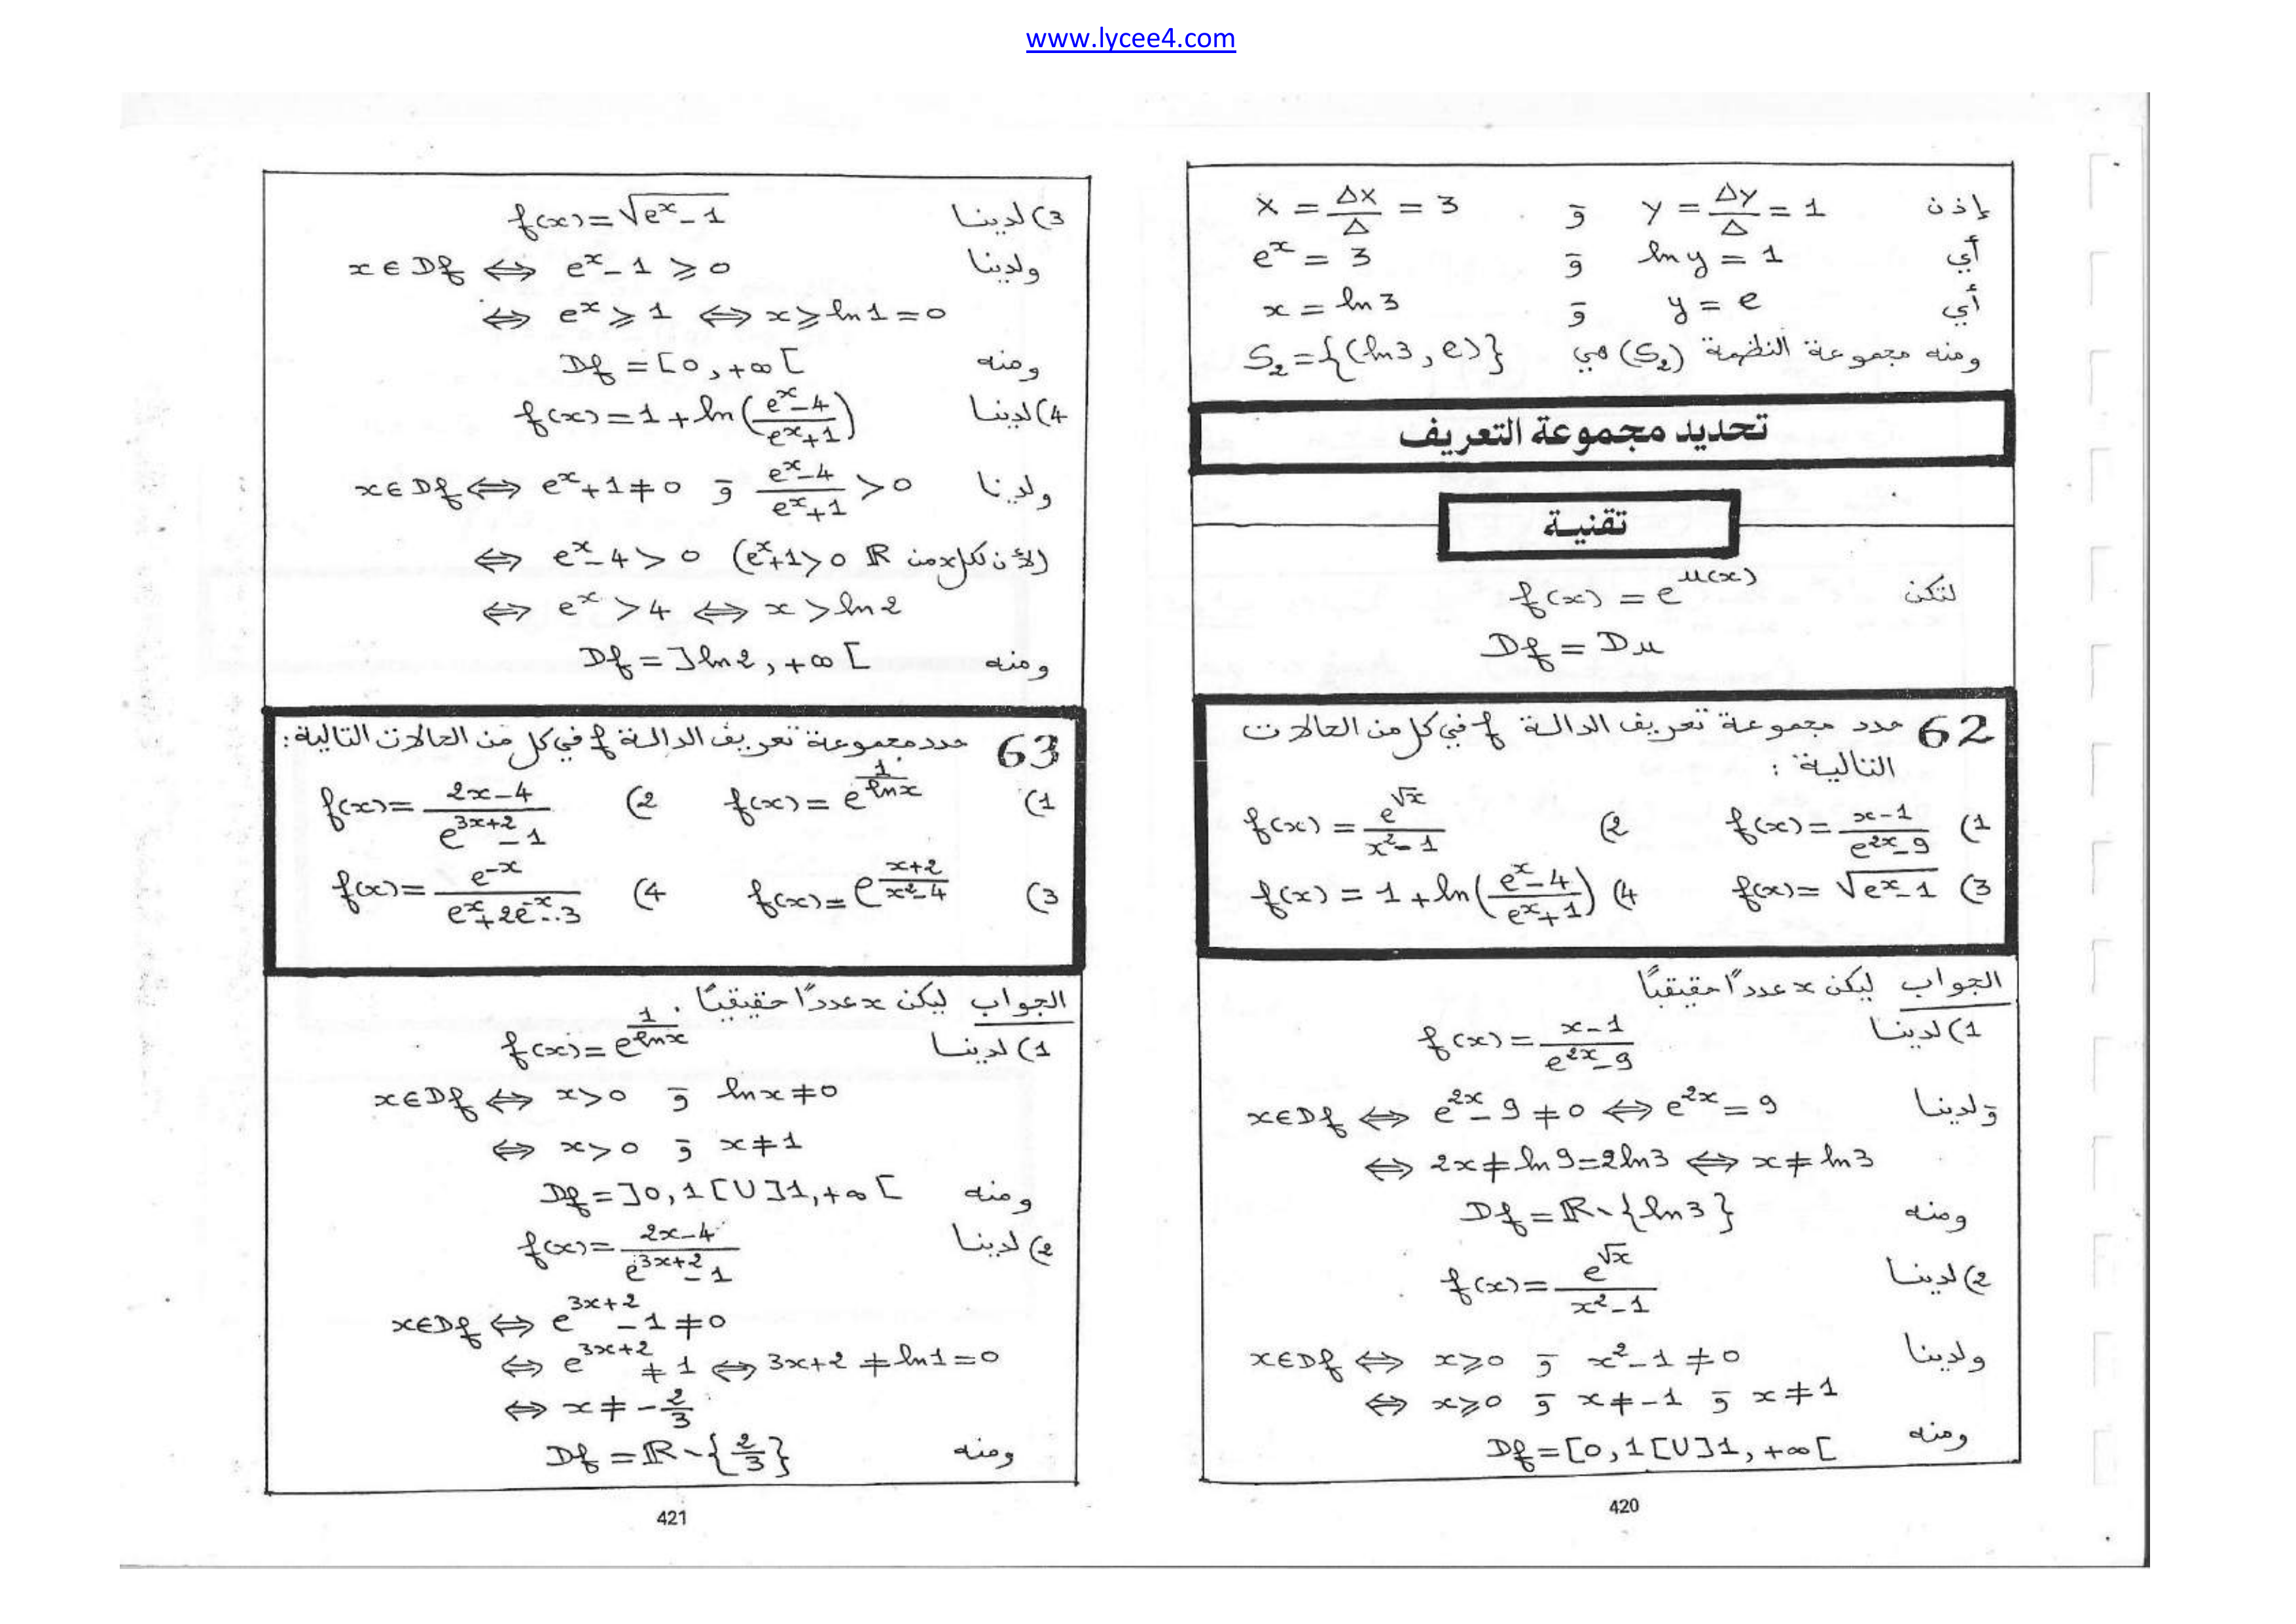 www.lycee4.com
إذن X = ΔX/Δ = 3 و Y = ΔY/Δ = 1
أي e^x = 3 و ln y = 1
أي x = ln 3 و y = e
ومنه مجموعة النظمة (S₂) هي S₂ = {(ln3, e)}
تحديد مجموعة التعريف
تقنية
لتكن f(x) = e^u(x)
Df = Du
62 حدد مجموعة تعريف الدالة f في كل من الحالات
التالية :
1) f(x) = (x-1)/(e^2x - 9) 2) f(x) = e^√x/(x² - 1)
3) f(x) = √(e^x - 1) 4) f(x) = 1 + ln((e^x - 4)/(e^x + 1))
الجواب ليكن x عددًا حقيقيًا
1) لدينا f(x) = (x-1)/(e^2x - 9)
ولدينا x∈Df ⟺ e^2x - 9 ≠ 0 ⟺ e^2x = 9
⟺ 2x ≠ ln9 = 2ln3 ⟺ x ≠ ln3
ومنه Df = ℝ \ {ln3}
2) لدينا f(x) = e^√x/(x² - 1)
ولدينا x∈Df ⟺ x ⩾ 0 و x² - 1 ≠ 0
⟺ x ⩾ 0 و x ≠ -1 و x ≠ 1
ومنه Df = [0, 1[ U ]1, +∞[
420
3) لدينا f(x) = √(e^x - 1)
ولدينا x∈Df ⟺ e^x - 1 ⩾ 0
⟺ e^x ⩾ 1 ⟺ x ⩾ ln1 = 0
ومنه Df = [0, +∞[
4) لدينا f(x) = 1 + ln((e^x - 4)/(e^x + 1))
ولدينا x∈Df ⟺ e^x + 1 ≠ 0 و (e^x - 4)/(e^x + 1) > 0
⟺ e^x - 4 > 0 (لأن لكل x من ℝ e^x + 1 > 0)
⟺ e^x > 4 ⟺ x > ln2
ومنه Df = ]ln2, +∞[
63 حدد مجموعة تعريف الدالة f في كل من الحالات التالية :
1) f(x) = e^(1/ln x) 2) f(x) = (2x-4)/(e^(3x+2) - 1)
3) f(x) = e^((x+2)/(x²-4)) 4) f(x) = e^-x/(e^x + 2e^-x - 3)
الجواب ليكن x عددًا حقيقيًا .
1) لدينا f(x) = e^(1/ln x)
x∈Df ⟺ x > 0 و ln x ≠ 0
⟺ x > 0 و x ≠ 1
ومنه Df = ]0, 1[ U ]1, +∞[
2) لدينا f(x) = (2x-4)/(e^(3x+2) - 1)
x∈Df ⟺ e^(3x+2) - 1 ≠ 0
⟺ e^(3x+2) ≠ 1 ⟺ 3x+2 ≠ ln1 = 0
⟺ x ≠ -2/3
ومنه Df = ℝ \ {2/3}
421